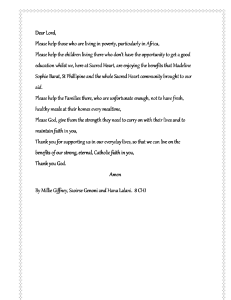 Dear Lord,
Please help those who are living in poverty, particularly in Africa,
Please help the children living there who don't have the opportunity to get a good
education whilst we, here at Sacred Heart, are enjoying the benefits that Madeline
Sophie Barat, St Phillipine and the whole Sacred Heart community brought to our
aid.
Please help the Families there, who are unfortunate enough, not to have fresh,
healthy meals at their homes every mealtime,
Please God, give them the strength they need to carry on with their lives and to
maintain faith in you,
Thank you for supporting us in our everyday lives, so that we can live on the
benefits of our strong, eternal, Catholic faith in you,
Thank you God.
Amen
By Millie Giffney, Susime Genoni and Hana Lalani. 8 CH1